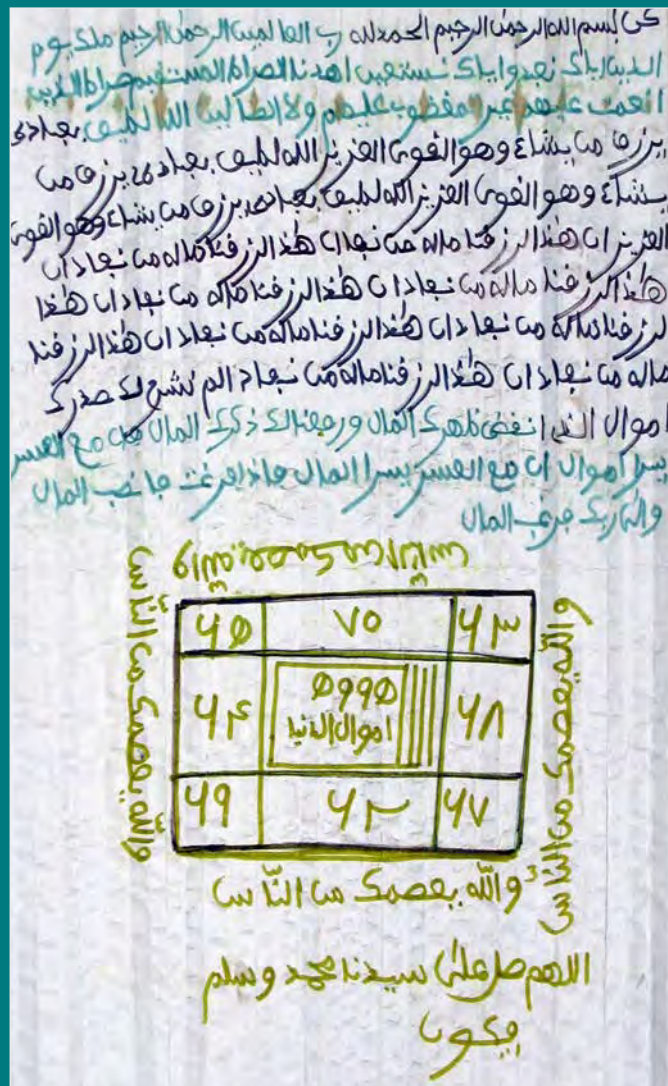 بسم الله الرحمن الرحيم الحمدلله رب العالمين الرحمن الرحيم ملك يوم
الدين اياك نعبد واياك نستعين اهدنا الصراط المستقيم صراط الذين
انعمت عليهم غير مغضوب عليهم ولا الضالين الله لطيف بعباده
يرزق من يشاء وهو القوى العزيز الله لطيف بعباده يرزق من
يشاء وهو القوى العزيز الله لطيف بعباده يرزق من يشاء وهو القوى
العزيز ان هٰذا لرزقنا ماله من نفاد ان هٰذا لرزقنا ماله من نفاد ان
هٰذا لرزقنا ماله من نفاد ان هٰذا لرزقنا ماله من نفاد ان هٰذا
لرزقنا ماله من نفاد ان هٰذا لرزقنا ماله من نفاد ان هٰذا لرزقنا
ماله من نفاد ان هٰذا لرزقنا ماله من نفاد الم نشرح لك صدرك
اموال الذى انقض ظهرك المال ورفعنا لك ذكرك المال فان مع العسر
يسرا اموال ان مع العسر يسرا المال فاذا فرغت فانصب المال
والى ربك فرغب المال
والله يعصمك من الناس
والله يعصمك من الناس
۶۳ ۷۰ ۶۵
۶۸ ۵۹۹۵ ۶۴
اموال الدنيا
۶۷ ۶۲ ۶۹
والله يعصمك من النّاس
والله يعصمك من النّاس
اللهم صل على سيدنا محمد وسلم
فيكون